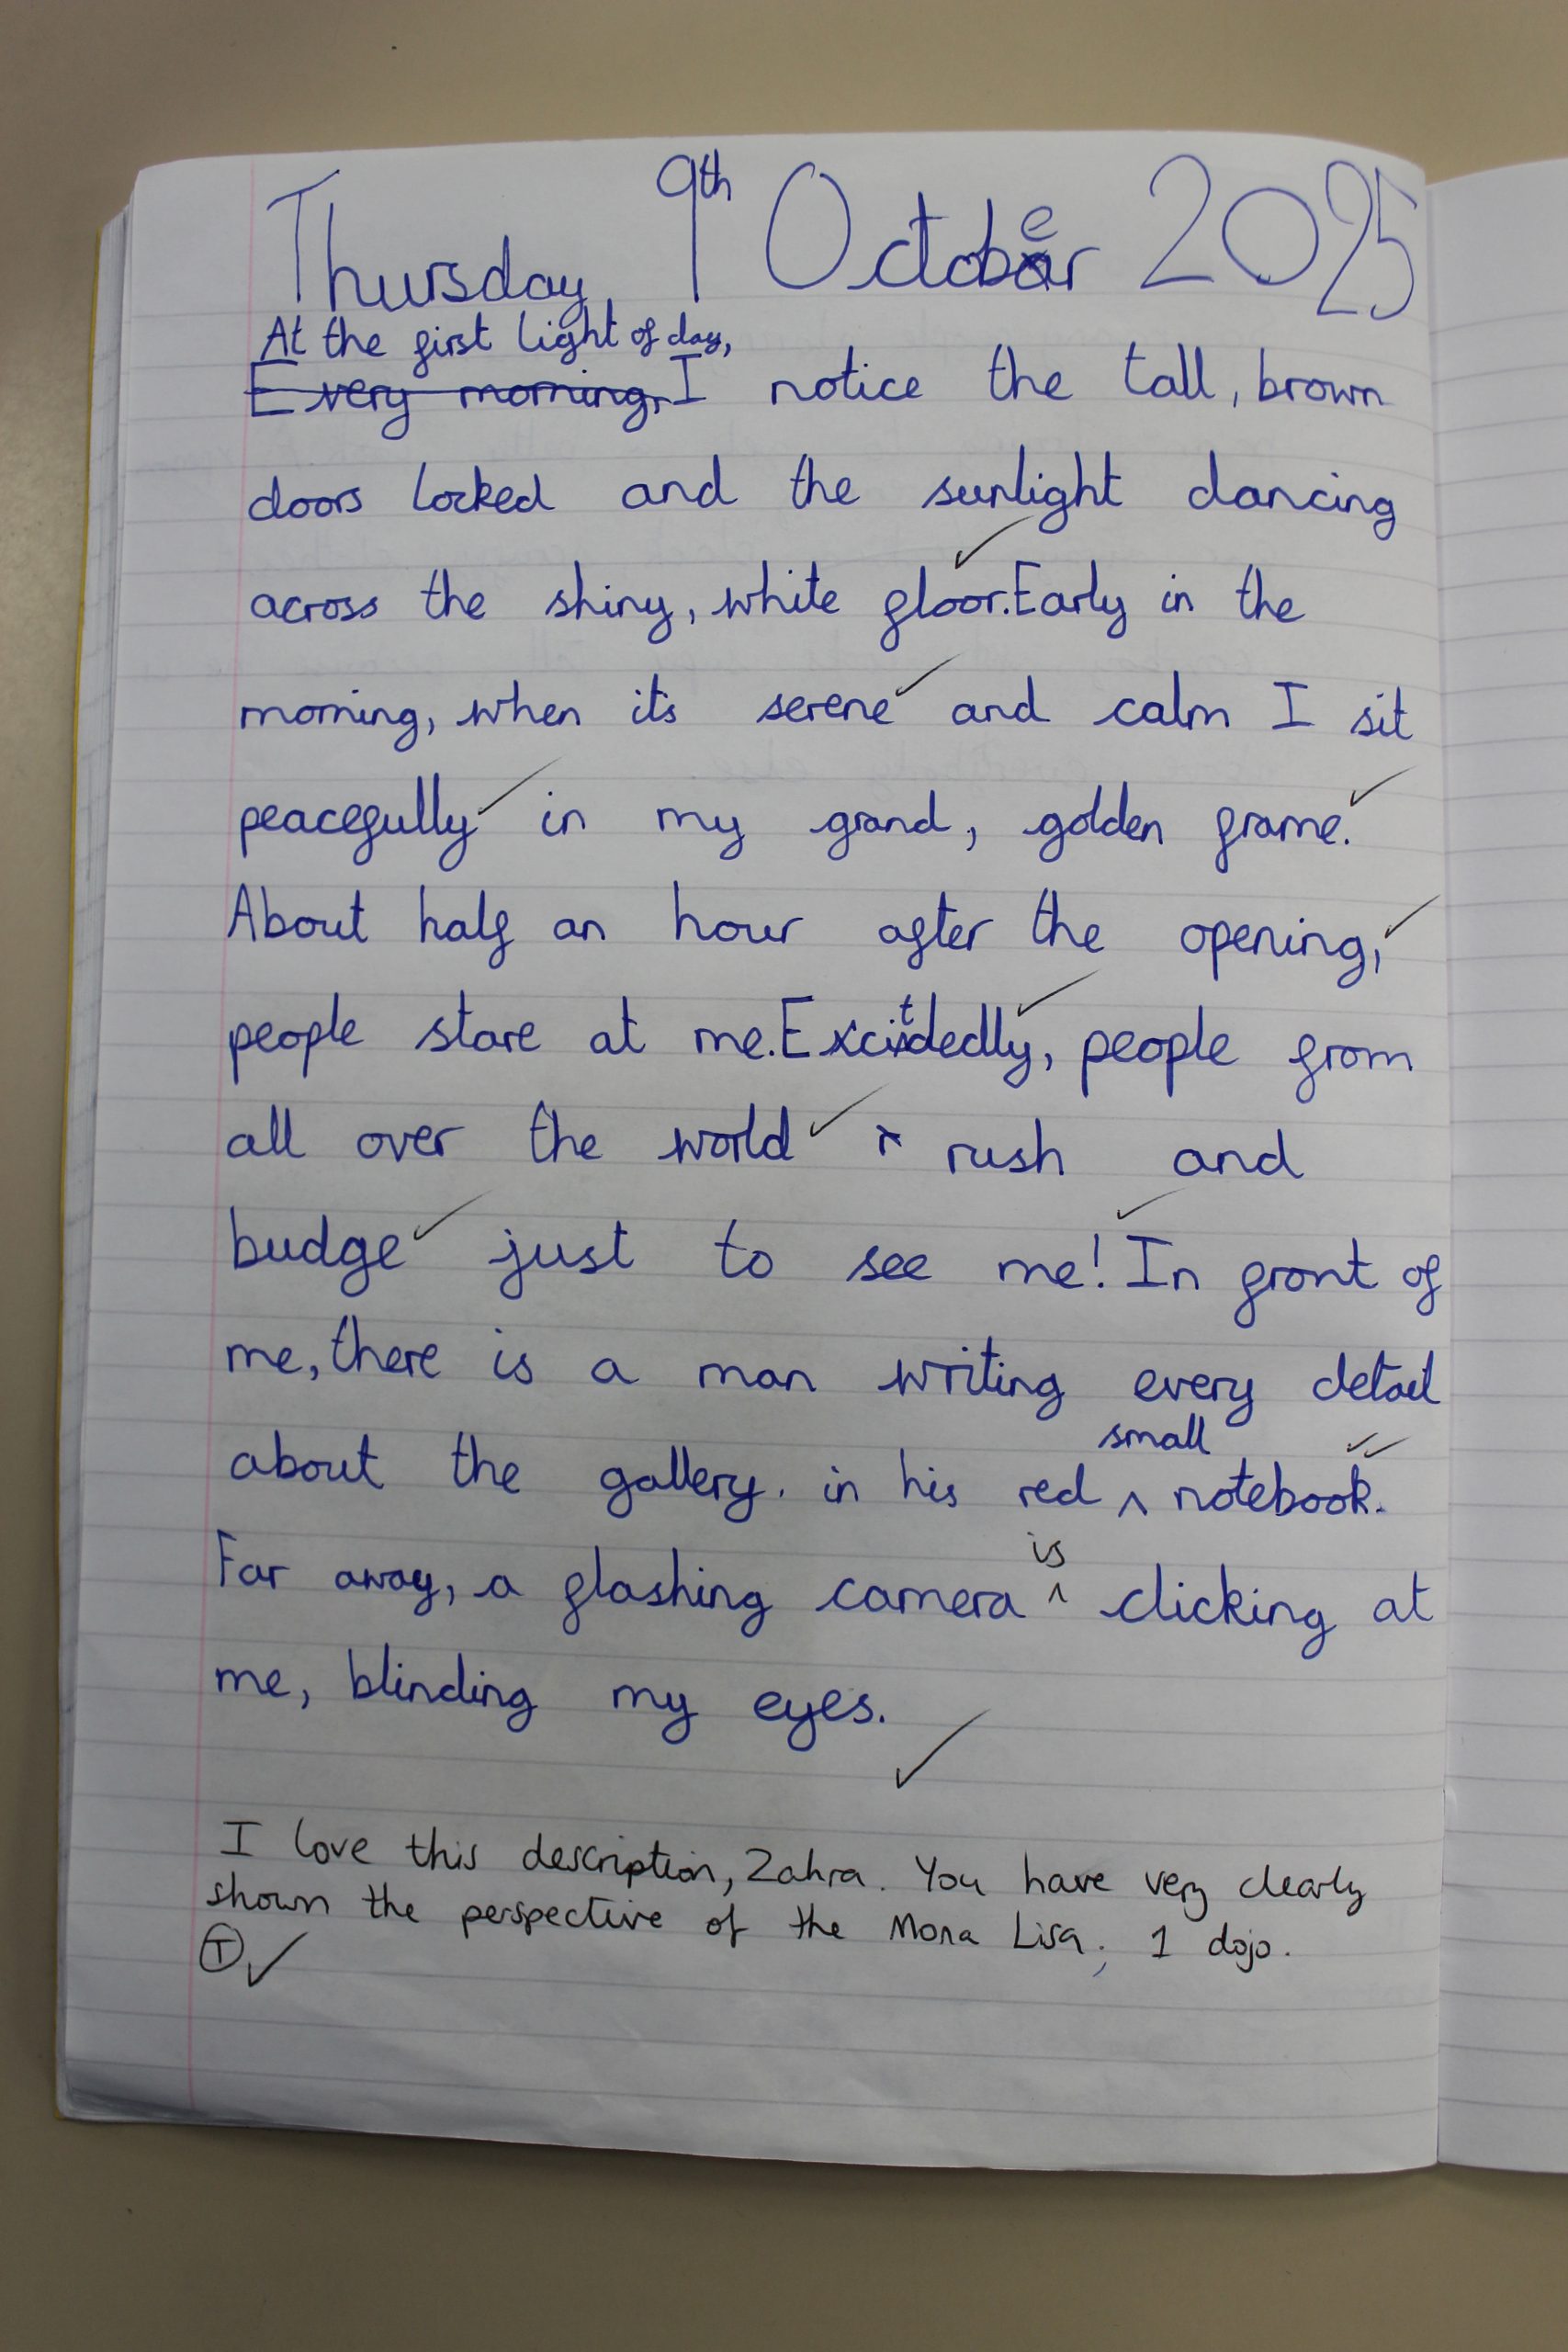 Thursday 9th October 2025
At the first light of day,
Every morning, I notice the tall, brown
doors locked and the sunlight dancing
across the shiny, white floor. Early in the
morning, when its serene and calm I sit
peacefully in my grand, golden frame.
About half an hour after the opening,
people stare at me. Excitdedly, people from
all over the world rush and
budge just to see me! In front of
me, there is a man writing every detail
about the gallery. in his red small notebook.
Far away, a flashing camera is clicking at
me, blinding my eyes.
I love this description, Zahra. You have very clearly
shown the perspective of the Mona Lisa. 1 dojo.
T